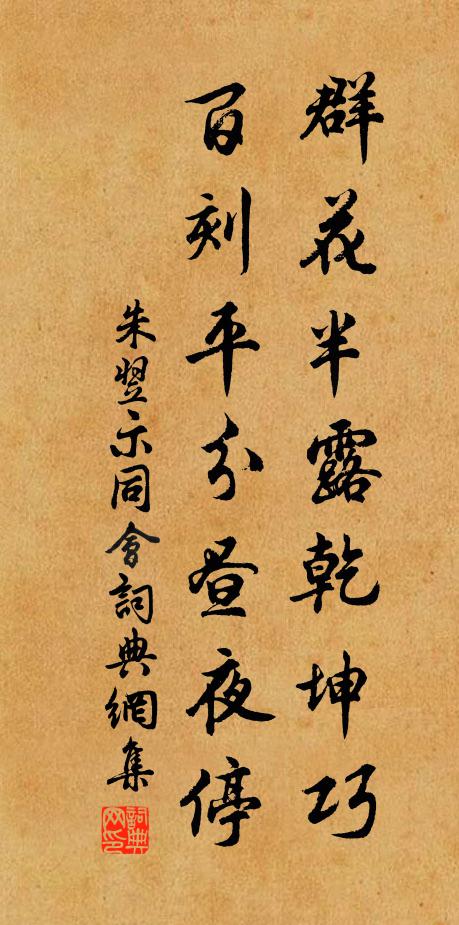 群花半露乾坤巧
百刻平分昼夜停
朱翌示同會詞典網集
詞典网印